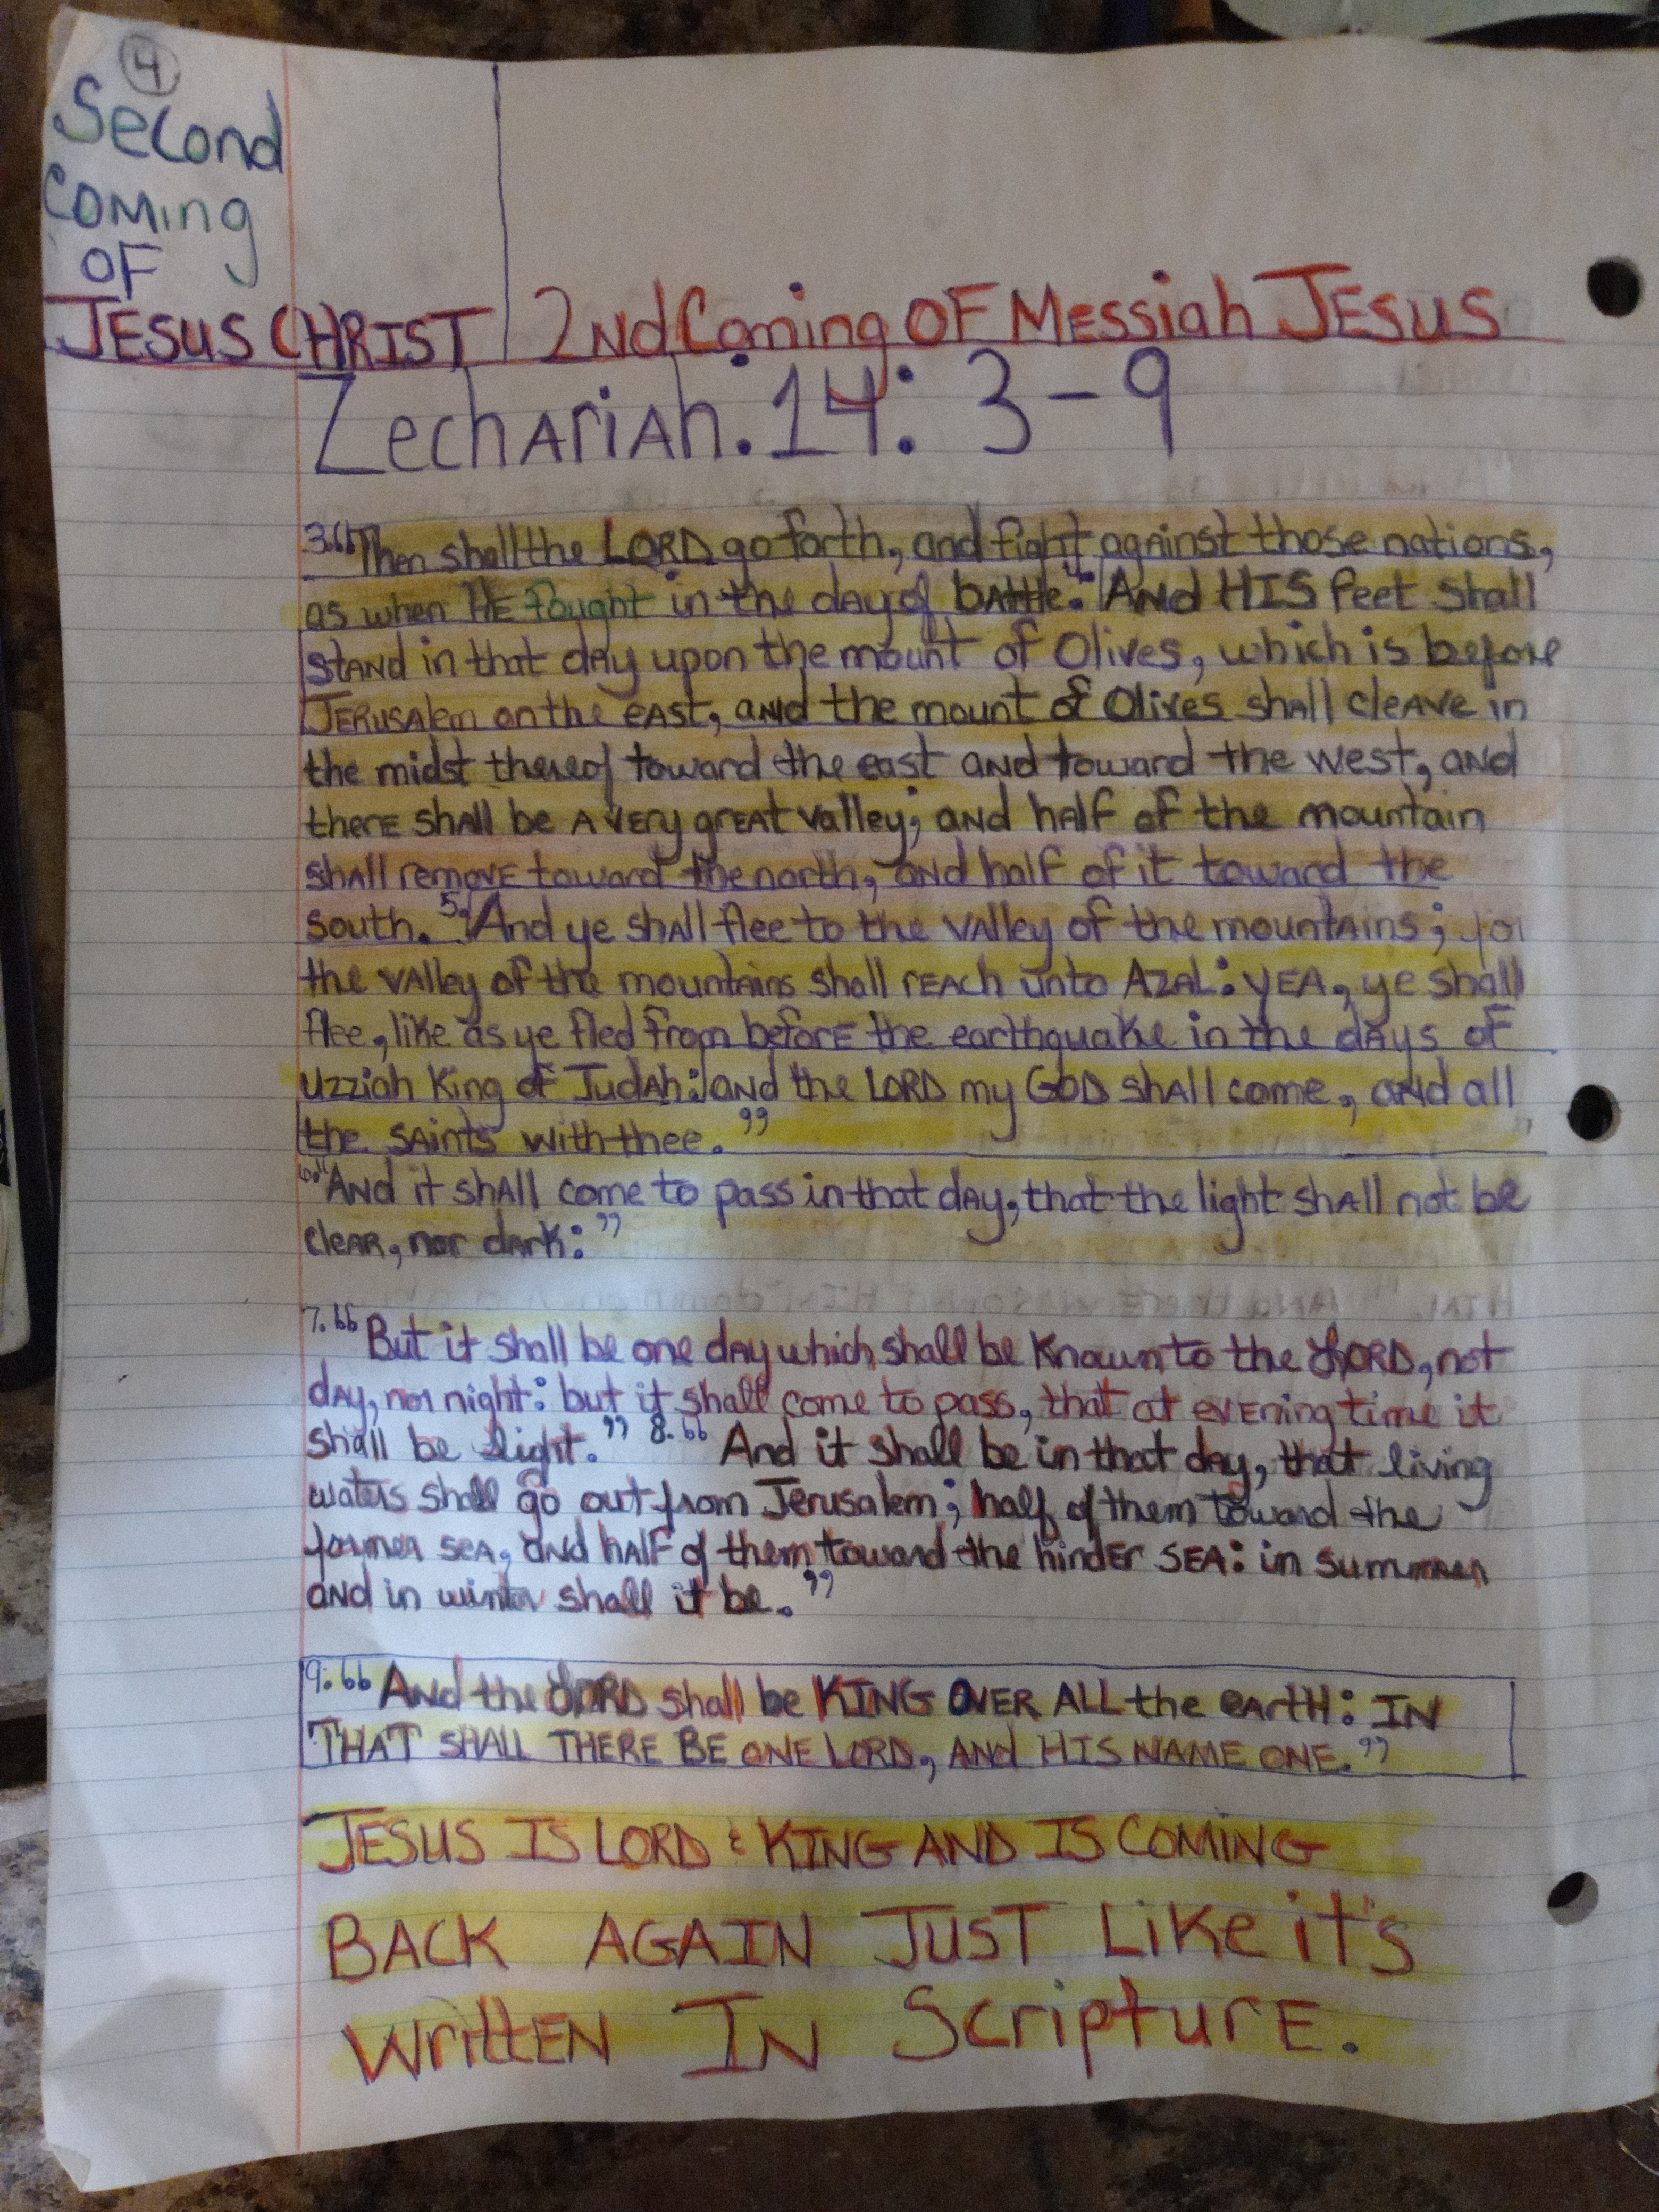 4
Second
Coming
OF
JESUS CHRIST
2nd Coming OF Messiah JESUS
Zechariah. 14: 3-9
3. "Then shall the LORD go forth, and fight against those nations,
as when HE fought in the day of battle. 4. And HIS feet shall
stand in that day upon the mount of Olives, which is before
Jerusalem on the east, and the mount of Olives shall cleave in
the midst thereof toward the east and toward the west, and
there shall be a very great valley; and half of the mountain
shall remove toward the north, and half of it toward the
south. 5. And ye shall flee to the valley of the mountains; for
the valley of the mountains shall reach unto Azal: yea, ye shall
flee, like as ye fled from before the earthquake in the days of
Uzziah King of Judah: and the LORD my GOD shall come, and all
the saints with thee."
6. "And it shall come to pass in that day, that the light shall not be
clear, nor dark:"
7. "But it shall be one day which shall be known to the LORD, not
day, nor night: but it shall come to pass, that at evening time it
shall be light." 8. "And it shall be in that day, that living
waters shall go out from Jerusalem; half of them toward the
former sea, and half of them toward the hinder sea: in summer
and in winter shall it be."
9. "And the LORD shall be KING OVER ALL the earth: IN
THAT SHALL THERE BE ONE LORD, AND HIS NAME ONE."
JESUS IS LORD & KING AND IS COMING
BACK AGAIN JUST Like it's
Written IN Scripture.